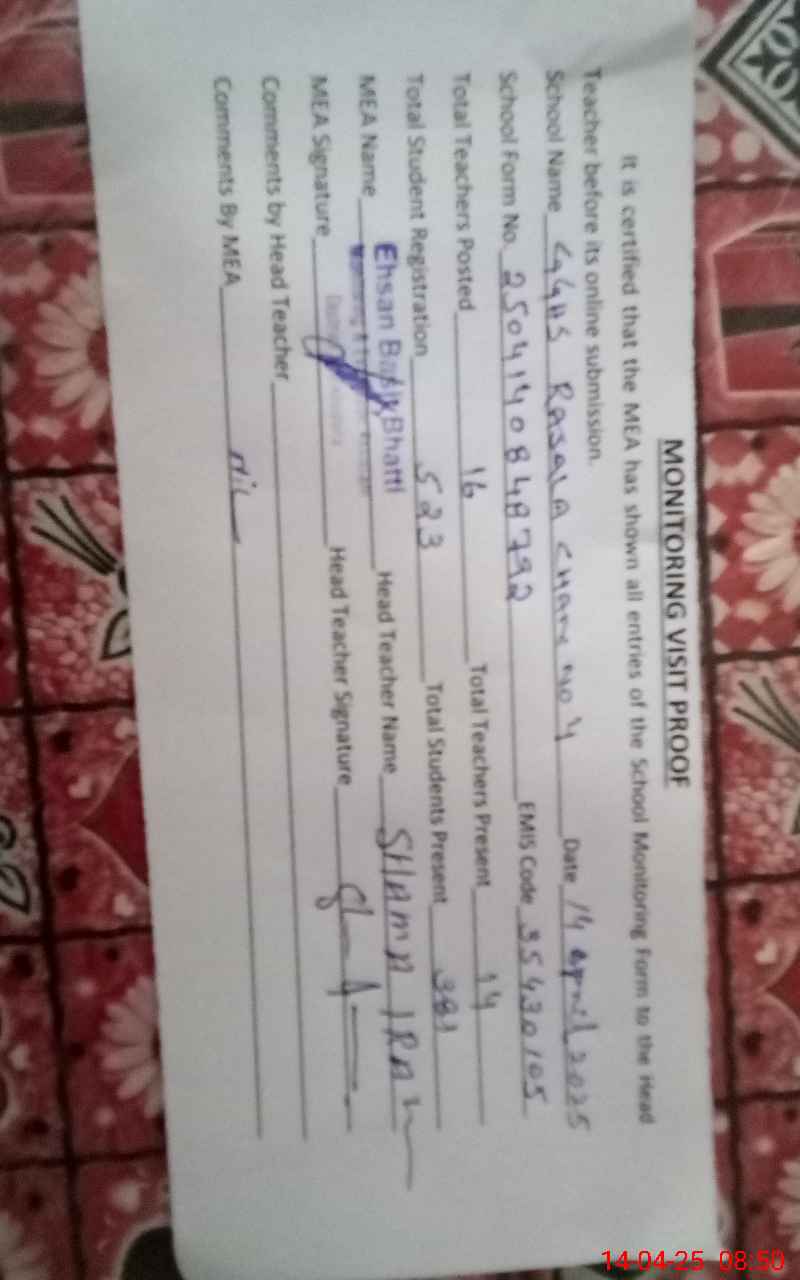 MONITORING VISIT PROOF
It is certified that the MEA has shown all entries of the School Monitoring Form to the Head
Teacher before its online submission.
School Name GGHS RASALA CHAK NO 4 Date 14 april 2025
School Form No. 2504140848792 EMIS Code 35430105
Total Teachers Posted 16 Total Teachers Present 14
Total Student Registration 523 Total Students Present 381
MEA Name Ehsan Bashir Bhatti Head Teacher Name SHAMA IRAM
MEA Signature Head Teacher Signature
Comments by Head Teacher
Comments By MEA Nil
14-04-25 08:50